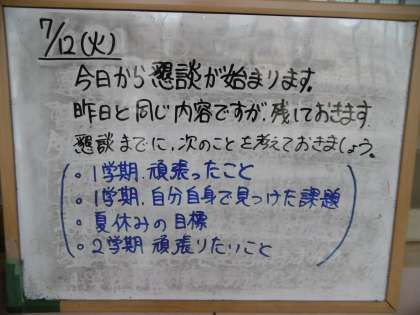 7/12(火)
今日から懇談が始まります。
昨日と同じ内容ですが、残しておきます。
懇談までに、次のことを考えておきましょう。
○1学期、頑張ったこと
○1学期、自分自身で見つけた課題
○夏休みの目標
○2学期 頑張りたいこと